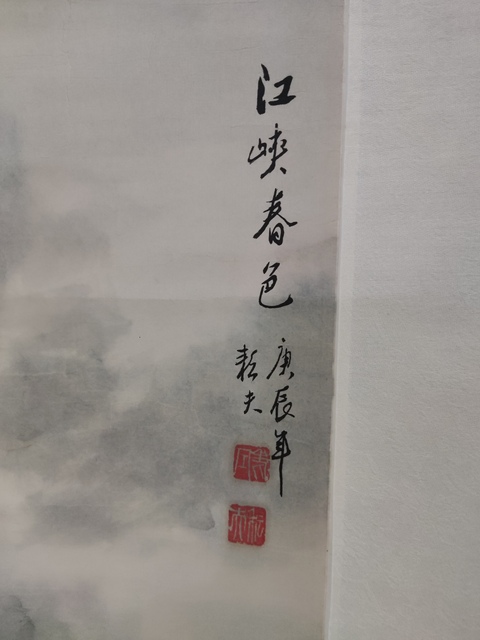 江峡春色
庚辰年
耘夫